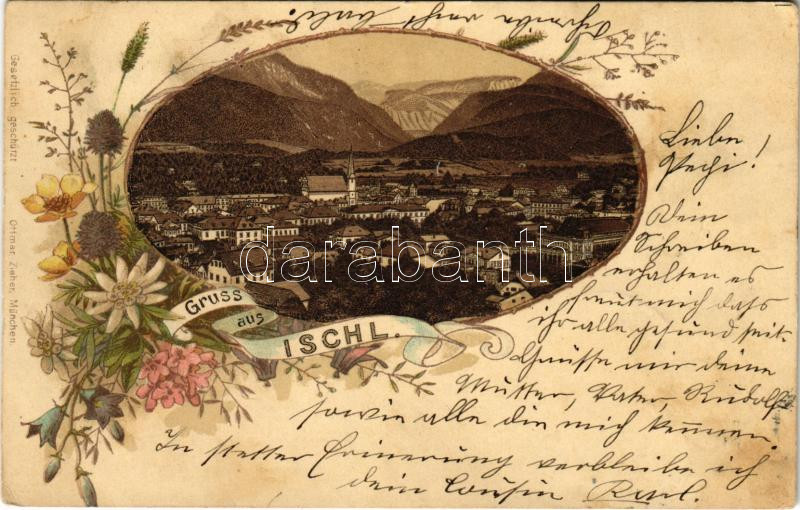 Schreibe recht bald!
Liebe
Pepi!
Dein
Schreiben
erhalten es
freut mich daß
ihr alle gesund seit.
Grüsse mir deine
Mutter, Vater, Rudolf
sowie alle die mich kennen.
In stetter Erinerung verbleibe ich
dein Cousin Karl.
Gruss
aus
ISCHL.
Gesetzlich geschützt Ottmar Zieher, München.
darabanth